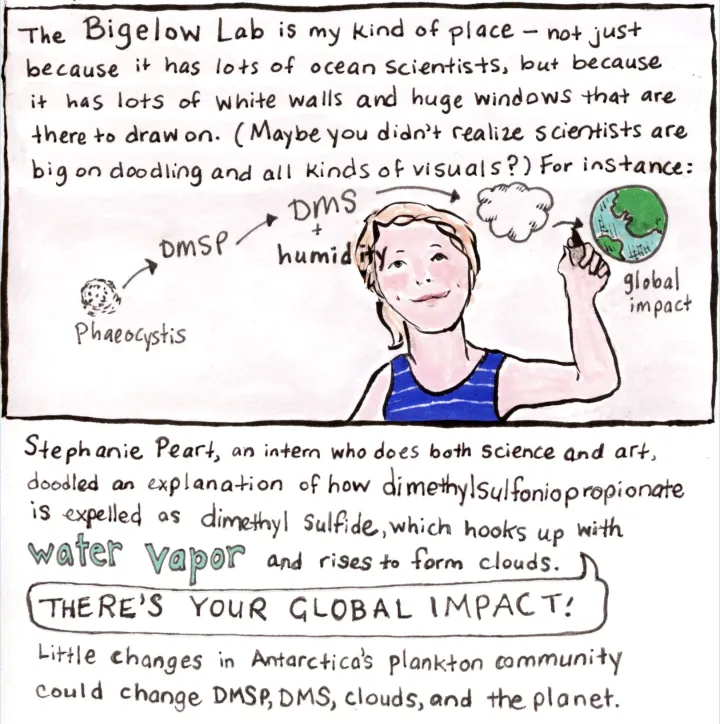 The Bigelow Lab is my kind of place – not just
because it has lots of ocean scientists, but because
it has lots of white walls and huge windows that are
there to draw on. (Maybe you didn't realize scientists are
big on doodling and all kinds of visuals?) For instance:
Phaeocystis
DMSP
DMS
+
humidity
global
impact
Stephanie Peart, an intern who does both science and art,
doodled an explanation of how dimethylsulfoniopropionate
is expelled as dimethyl sulfide, which hooks up with
water vapor and rises to form clouds.
THERE'S YOUR GLOBAL IMPACT!
Little changes in Antarctica's plankton community
could change DMSP, DMS, clouds, and the planet.